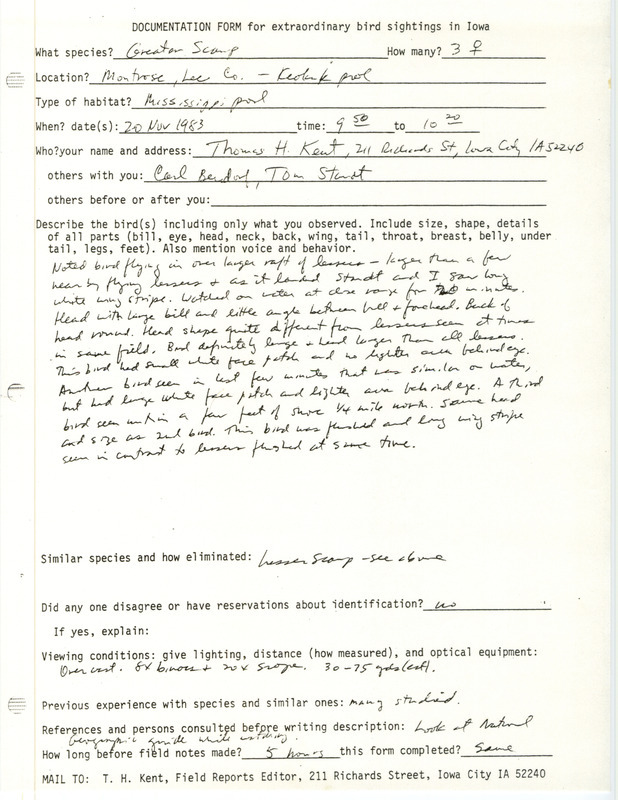 DOCUMENTATION FORM for extraordinary bird sightings in Iowa
What species? Greater Scaup How many? 3 ♀
Location? Montrose, Lee Co. - Keokuk pool
Type of habitat? Mississippi pool
When? date(s): 20 Nov 1983 time: 9 50 to 10 20
Who?your name and address: Thomas H. Kent, 211 Richards St, Iowa City IA 52240
others with you: Carl Bendorf, Tom Staudt
others before or after you:
Describe the bird(s) including only what you observed. Include size, shape, details
of all parts (bill, eye, head, neck, back, wing, tail, throat, breast, belly, under
tail, legs, feet). Also mention voice and behavior.
Noted bird flying in over larger raft of lessers - larger than a few
near by flying lessers + as it landed Staudt and I saw long
white wing stripe. Watched on water at close range for 20 minutes.
Head with large bill and little angle between bill + forehead. Back of
head round. Head shape quite different from lessers seen at times
in same field. Bird definitely large + head larger than all lessers.
This bird had small white face patch and no lighter area behind eye.
Another bird seen in last few minutes that was similar on water,
but had large white face patch and lighter area behind eye. A third
bird seen within a few feet of shore 1/4 mile north. Same head
and size as 2nd bird. This bird was flushed and long wing stripe
seen in contrast to lessers flushed at same time.
Similar species and how eliminated: Lesser Scaup - see above
Did any one disagree or have reservations about identification? no
If yes, explain:
Viewing conditions: give lighting, distance (how measured), and optical equipment:
Overcast. 8x binocs + 20x scope. 30-75 yds (est).
Previous experience with species and similar ones: many studied.
References and persons consulted before writing description: Look at National
Geographic guide while watching.
How long before field notes made? 5 hours this form completed? same
MAIL TO: T. H. Kent, Field Reports Editor, 211 Richards Street, Iowa City IA 52240